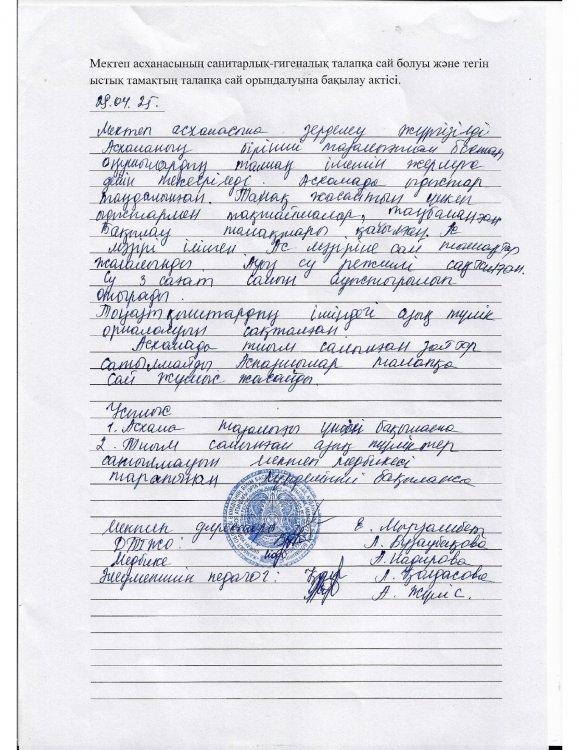 Мектеп асханасының санитарлық-гигеналық талапқа сай болуы және тегін
ыстық тамақтың талапқа сай орындалуына бақылау актісі.
29.04.25г.
Мектеп асханасына зерделеу жүргізілді
Асхананың бірінші тазалығынан бастап
оқушылардың тамақ ішетін жерлерге
дейін тексерілді. Асханада ыдыстар
таңдалынған. Тамақ жасайтын үлкен
ыдыстармен тақтайшалар, таңбаланған
Бақылау тамақтары қойылған. Ас
мәзірі ілінген Ас мәзіріне сай тамақтар
жасалынды Ауыз су режимі сақталған.
Су 3 сағат сайын ауыстырылып
отырады.
Тоңазытқыштардың ішіндегі азық түлік
орналасуы сақталған
Асханада тиым салынған заттар
сатылмайды Аспазшылар талапқа
сай жұмыс жасайды.
Ұсыныс
1. Асхана тазалығы үнемі бақылауға
2. Тиым салынған азық түліктер
сатылмауын мектеп медбикесі
тарапынан күнделікті бақылауға
Мектеп директоры Е.
ДТЖО: Л.
Медбике А. Надирова
Әлеуметтік педагог: Л.
А. Жүніс.